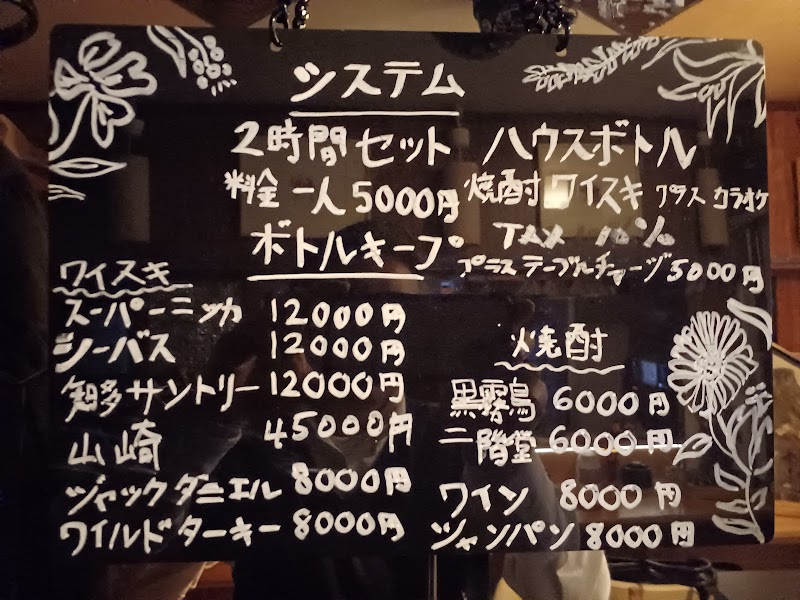 システム
2時間セット ハウスボトル
料金 一人 5000円 焼酎 ワイスキ プラス カラオケ
TAX 10%
プラステーブルチャージ 5000円
ボトルキープ
ワイスキ
スーパーニッカ 12000円
シーバス 12000円
知多サントリー 12000円
山崎 45000円
ジャックダニエル 8000円
ワイルドターキー 8000円
焼酎
黒霧島 6000円
二階堂 6000円
ワイン 8000円
シャンパン 8000円